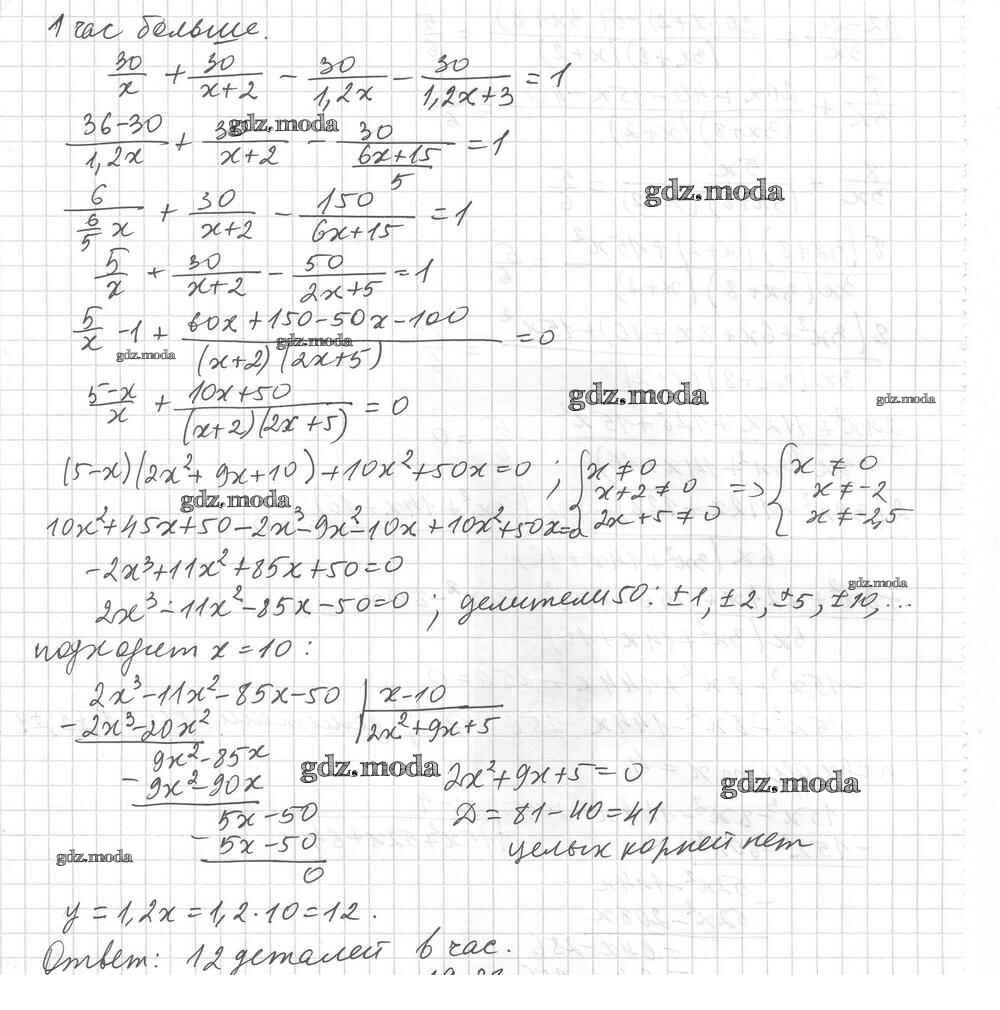 1 час больше.
30/x + 30/(x+2) − 30/(1,2x) − 30/(1,2x+3) = 1
(36−30)/(1,2x) + 30/(x+2) − 30/((6x+15)/5) = 1
gdz.moda
6/((6/5)x) + 30/(x+2) − 150/(6x+15) = 1
gdz.moda
5/x + 30/(x+2) − 50/(2x+5) = 1
5/x − 1 + (60x+150−50x−100)/((x+2)(2x+5)) = 0
gdz.moda gdz.moda
(5−x)/x + (10x+50)/((x+2)(2x+5)) = 0
gdz.moda gdz.moda
(5−x)(2x²+9x+10)+10x²+50x=0 ; { x≠0 x+2≠0 2x+5≠0 => { x≠0 x≠−2 x≠−2,5
gdz.moda
10x²+45x+50−2x³−9x²−10x+10x²+50x=0
−2x³+11x²+85x+50=0
gdz.moda
2x³−11x²−85x−50=0 ; делители 50: ±1, ±2, ±5, ±10, ...
подходит x=10 :
2x³−11x²−85x−50 | x−10
− 2x³−20x² | 2x²+9x+5
9x²−85x
− 9x²−90x
5x−50
− 5x−50
0
gdz.moda
2x²+9x+5=0
gdz.moda
Д=81−40=41
целых корней нет
gdz.moda
y=1,2x=1,2·10=12.
Ответ: 12 деталей в час.